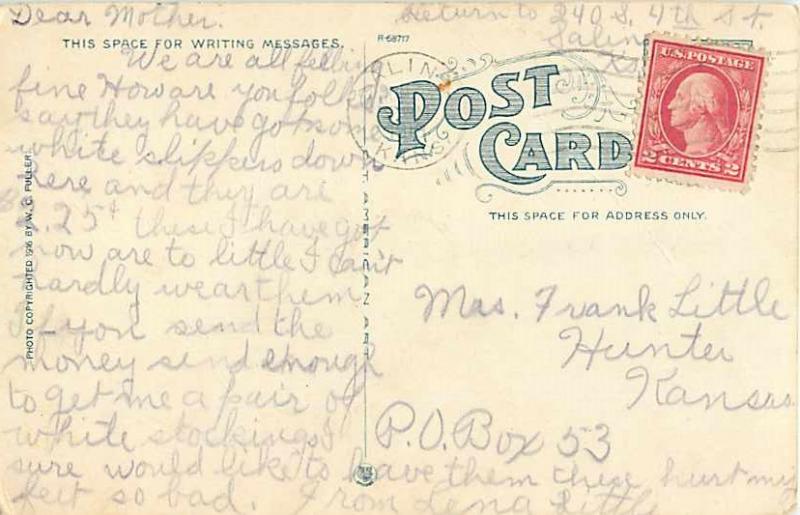 Dear Mother.
THIS SPACE FOR WRITING MESSAGES.
We are all feeling
fine How are you folks
say they have got some
white slippers down
here and they are
.25¢ these I have got
now are to little I can't
hardly wear them
If you send the
money send enough
to get me a pair of
white stockings I
sure would like to have them these hurt my
feet so bad. From Lena Little
PHOTO COPYRIGHTED 1916 BY W. C. FULLER.
R-68717
Return to 240 S. 4th St.
Salina
POST CARD
U.S. POSTAGE
2 CENTS 2
THIS SPACE FOR ADDRESS ONLY.
AMERICAN ART
Mrs. Frank Little
Hunter
Kansas
P.O. Box 53